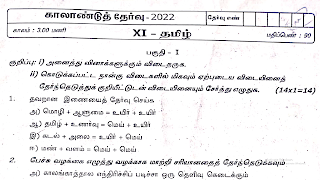 காலாண்டுத் தேர்வு - 2022
தேர்வு எண்
காலம் : 3.00 மணி
XI – தமிழ்
மதிப்பெண் : 90
பகுதி - I
குறிப்பு: i) அனைத்து வினாக்களுக்கும் விடை தருக.
ii) கொடுக்கப்பட்ட நான்கு விடைகளில் மிகவும் ஏற்புடைய விடையினைத்
தேர்ந்தெடுத்துக் குறியீட்டுடன் விடையினையும் சேர்த்து எழுதுக. (14x1=14)
1. தவறான இணையைத் தேர்வு செய்க
அ) மொழி + ஆளுமை = உயிர் + உயிர்
ஆ) தமிழ் + உணர்வு = மெய் + உயிர்
இ) கடல் + அலை = உயிர் + மெய்
ஈ) மண் + வளம் = மெய் + மெய்
2. பேச்சு வழக்கை எழுத்து வழக்காக மாற்றி சரியானதைத் தேர்ந்தெடுக்கவும்
அ) காலங்காத்தால எந்திரிச்சிப் படிச்சா ஒரு தெளிவு கெடைக்கும்